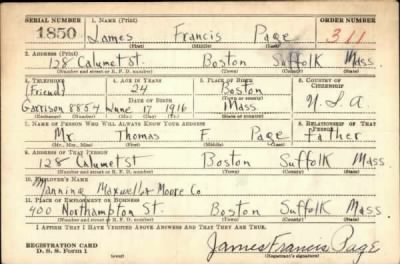 SERIAL NUMBER 1. NAME (Print) ORDER NUMBER
1850 James Francis Page 311
(First) (Middle) (Last)
2. ADDRESS (Print)
128 Calumet St. Boston Suffolk Mass.
(Number and street or R. F. D. number) (Town) (County) (State)
3. TELEPHONE 4. AGE IN YEARS 5. PLACE OF BIRTH 6. COUNTRY OF CITIZENSHIP
(Friend) 24 Boston
DATE OF BIRTH (Town or county)
Garrison 8854 June 17 1916 Mass U.S.A
(Exchange) (Number) (Mo.) (Day) (Yr.) (State or country)
7. NAME OF PERSON WHO WILL ALWAYS KNOW YOUR ADDRESS 8. RELATIONSHIP OF THAT PERSON
Mr Thomas F Page father
(Mr., Mrs., Miss) (First) (Middle) (Last)
9. ADDRESS OF THAT PERSON
128 Calumet St Boston Suffolk Mass
(Number and street or R. F. D. number) (Town) (County) (State)
10. EMPLOYER'S NAME
Manning Maxwell & Moore Co
11. PLACE OF EMPLOYMENT OR BUSINESS
400 Northampton St. Boston Suffolk Mass.
(Number and street or R. F. D. number) (Town) (County) (State)
I AFFIRM THAT I HAVE VERIFIED ABOVE ANSWERS AND THAT THEY ARE TRUE.
REGISTRATION CARD
D. S. S. Form 1 (over) James Francis Page
(Registrant's signature)